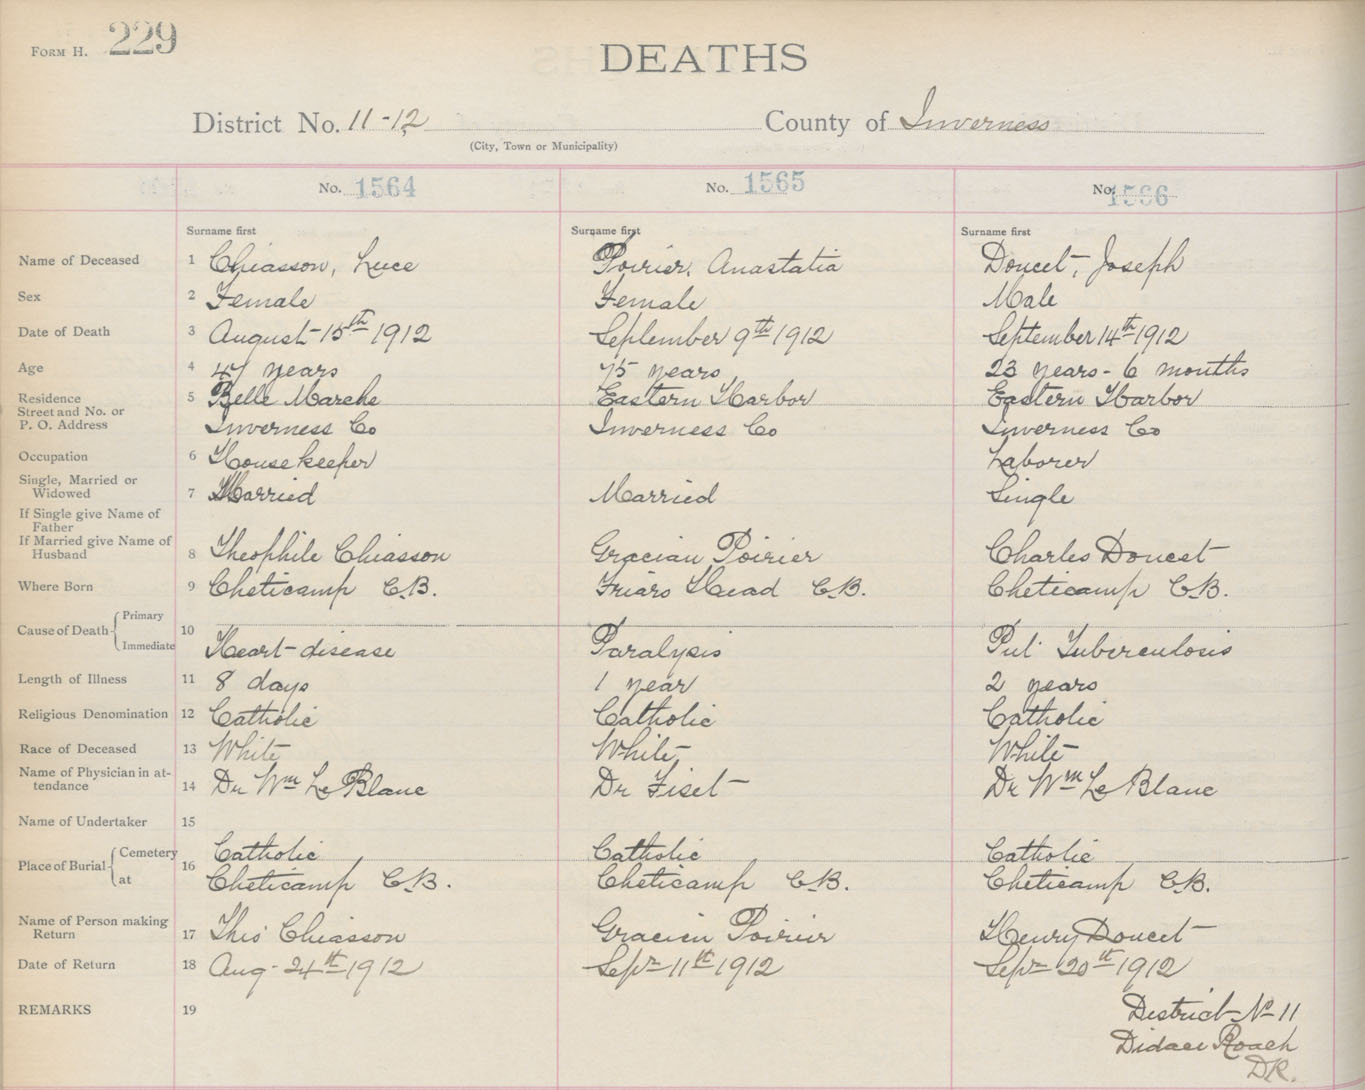 FORM H. 229
DEATHS
District No. 11-12 County of Inverness
(City, Town or Municipality)
No. 1564 No. 1565 No. 1566
Surname first Surname first Surname first
Name of Deceased 1 Chiasson, Luce Poirier, Anastatia Doucet, Joseph
Sex 2 Female Female Male
Date of Death 3 August 15th 1912 September 9th 1912 September 14th 1912
Age 4 47 years 75 years 23 years - 6 months
Residence 5 Belle Marche Eastern Harbor Eastern Harbor
Street and No. or
P. O. Address Inverness Co Inverness Co Inverness Co
Occupation 6 Housekeeper Laborer
Single, Married or
Widowed 7 Married Married Single
If Single give Name of
Father
If Married give Name of
Husband 8 Theophile Chiasson Gracian Poirier Charles Doucet
Where Born 9 Cheticamp C.B. Friars Head C.B. Cheticamp C.B.
Cause of Death Primary 10
Immediate Heart disease Paralysis Pul. Tuberculosis
Length of Illness 11 8 days 1 year 2 years
Religious Denomination 12 Catholic Catholic Catholic
Race of Deceased 13 White White White
Name of Physician in at-
tendance 14 Dr Wm Le Blanc Dr Fiset Dr Wm Le Blanc
Name of Undertaker 15
Place of Burial Cemetery 16 Catholic Catholic Catholic
at Cheticamp C.B. Cheticamp C.B. Cheticamp C.B.
Name of Person making
Return 17 Theo Chiasson Gracien Poirier Henry Doucet
Date of Return 18 Aug. 24th 1912 Sepr 11th 1912 Sepr 20th 1912
REMARKS 19 District No 11
Didace Roach
D.R.